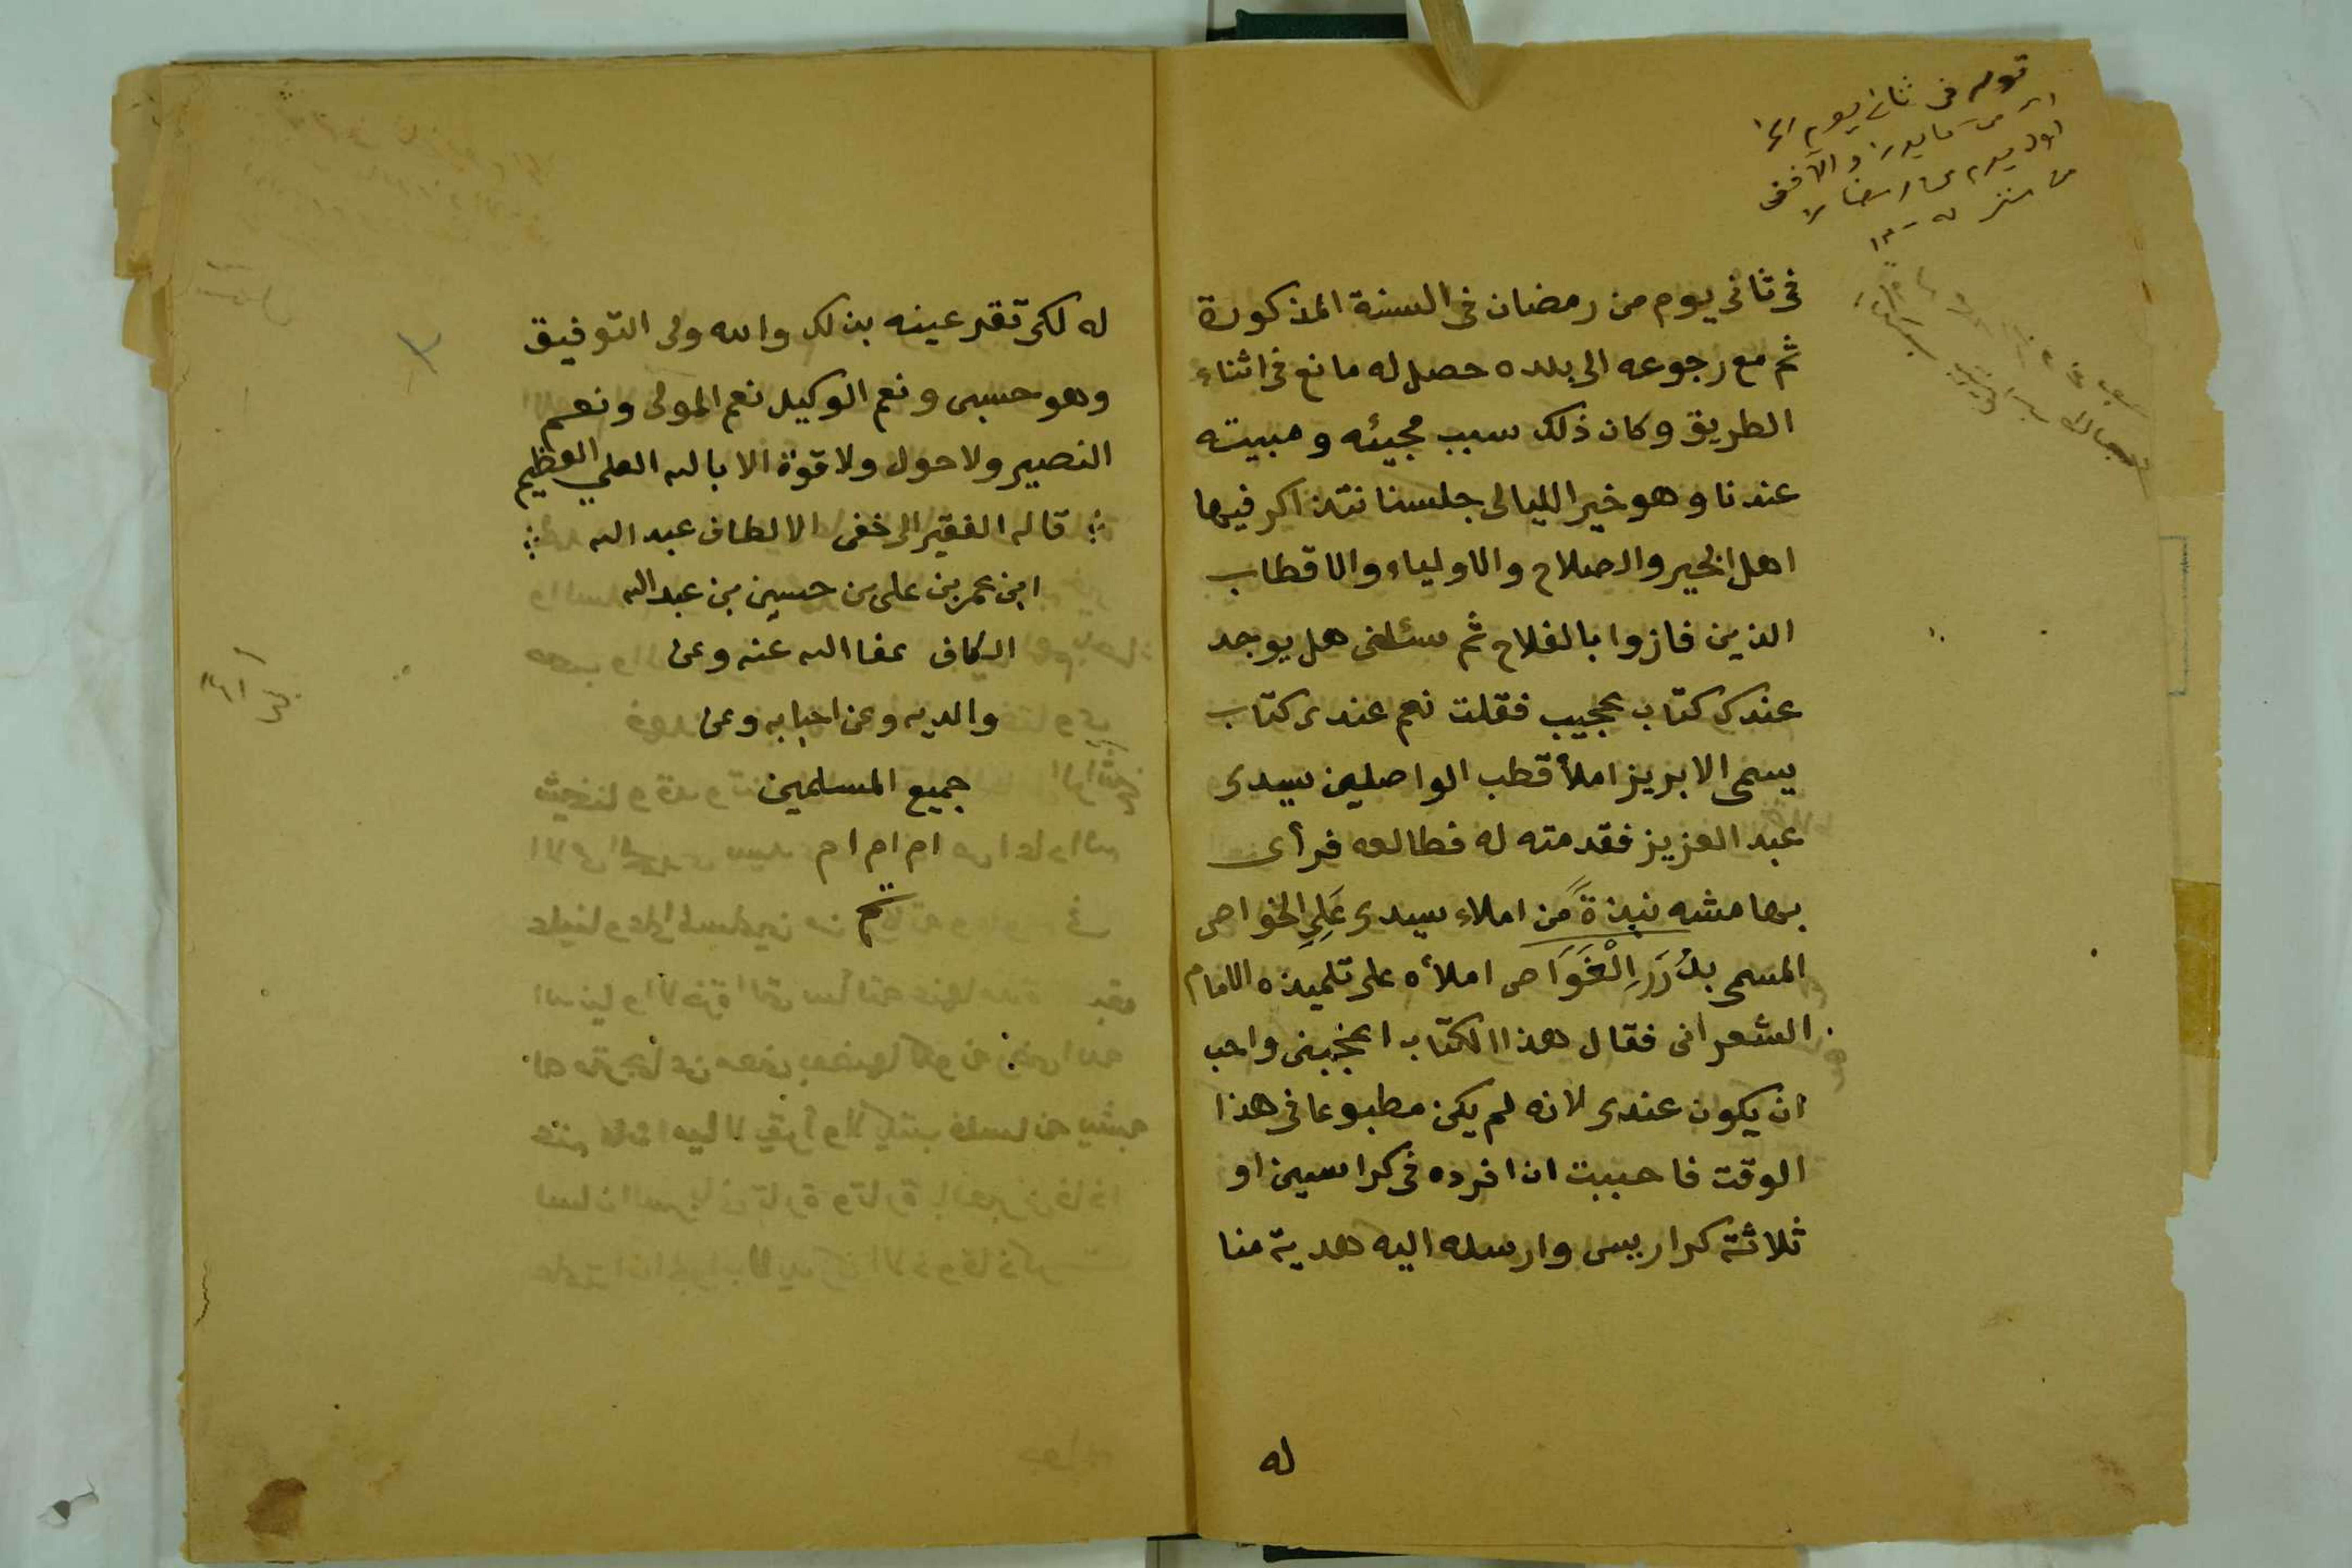 قوله فى ثانى يوم
فى ثانى يوم من رمضان فى السنة المذكورة
ثم مع رجوعه الى بلده حصل له مانع فى اثناء
الطريق وكان ذلك سبب مجيئه ومبيته
عندنا وهو خير الليالى جلسنا نتذاكر فيها
اهل الخير والصلاح والاولياء والاقطاب
الذين فازوا بالفلاح ثم سئلنى هل يوجد
عندك كتاب عجيب فقلت نعم عندى كتاب
يسمى الابريز املأ قطب الواصلين سيدى
عبد العزيز فقدمته له فطالعه فرأى
بهامشه نبذةً من املاء سيدى عَلِى الخواص
المسمى بدُرَرِ الْغَوَاص املأه على تلميذه الامام
الشعرانى فقال هذا الكتاب اعجبنى واحب
ان يكون عندى لانه لم يكن مطبوعا فى هذا
الوقت فاحببت ان افرده فى كراسين او
ثلاثة كراريس وارسله اليه هدية منا
له
له لكى تقر عينه بذلك والله ولى التوفيق
وهو حسبى ونعم الوكيل نعم المولى ونعم
النصير ولا حول ولا قوة الا بالله العلي العظيم
قاله الفقير الى خفى الالطاف عبد الله
ابن عمر بن على بن حسين بن عبد الله
الكاف عفا الله عنه وعن
والديه وعن احبابه وعن
جميع المسلمين
ام ام ام
تم